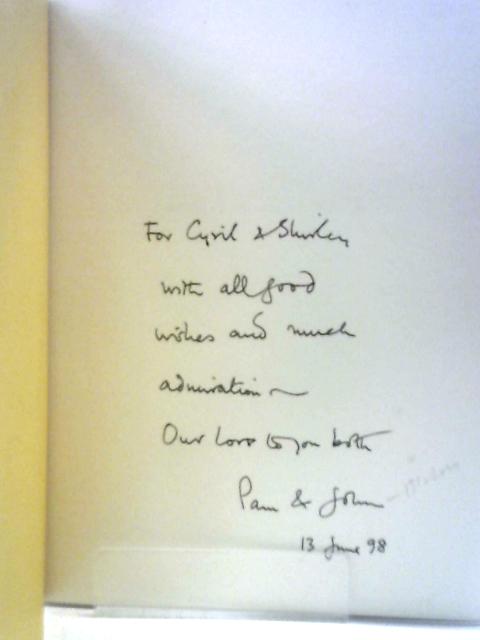 For Cyril & Shirley
with all good
wishes and much
admiration ~
Our love to you both
Pam & John
13 June 98